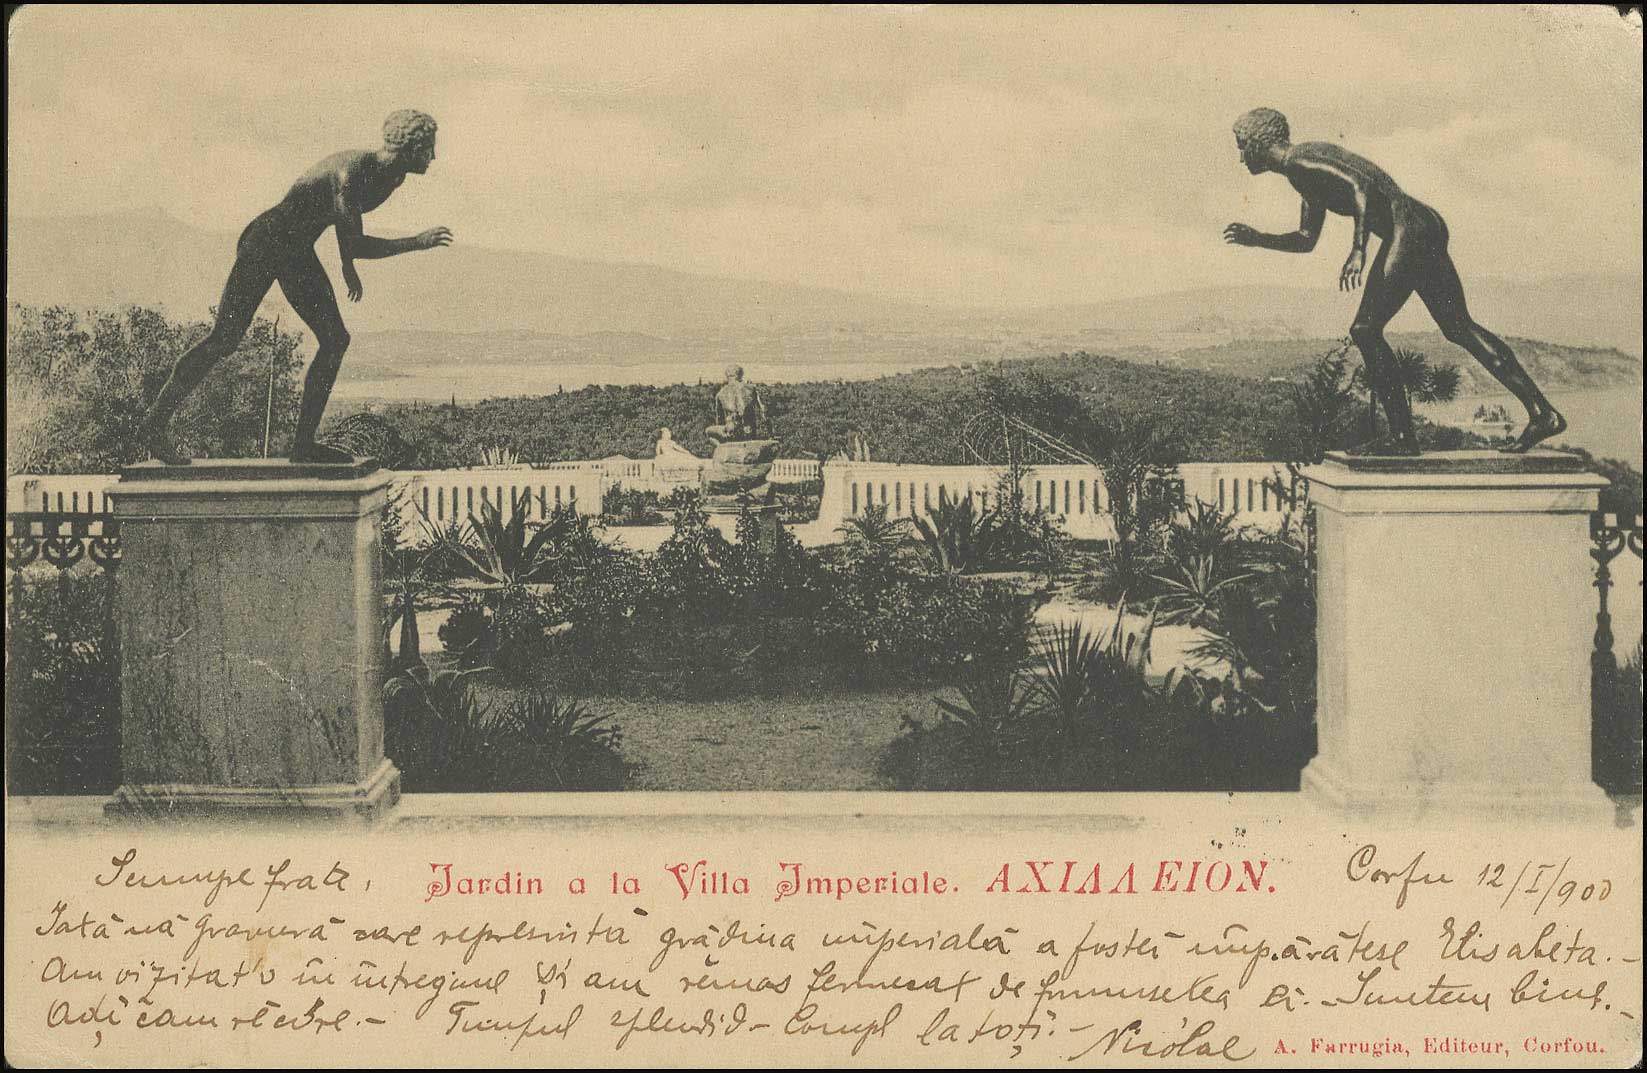 Scumpe frate,
Jardin a la Villa Imperiale. ΑΧΙΛΛΕΙΟΝ.
Corfu 12/I/900
Iată vă gravură care represintă grădina imperială a fostei împărătese Elisabeta.-
Am vizitat'o în întregime și am rămas fermecat de frumusețea ei.- Suntem bine.-
Adĭ cam răcóre.- Timpul splendid- Compl la toțĭ.-
Nicolae
A. Farrugia, Editeur, Corfou.